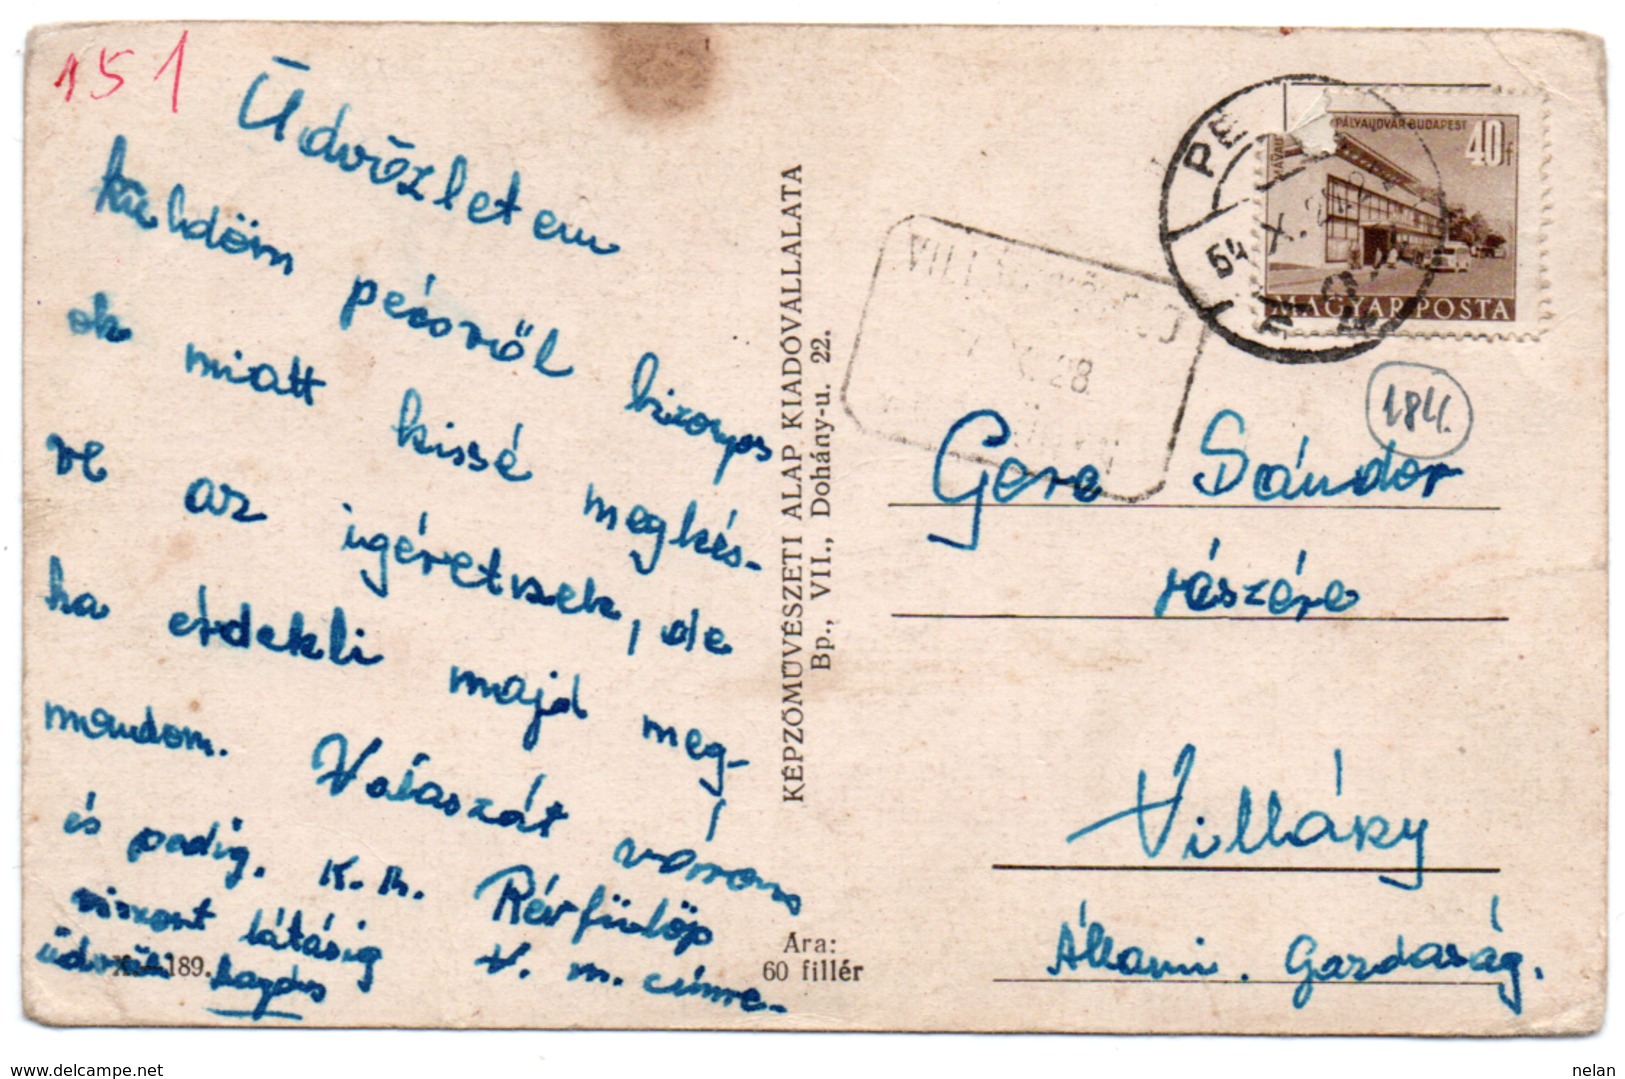 151
Üdvözletem
küldöm pécsről bizonyos
ok miatt kissé megkés-
ve az igéretnek, de
ha érdekli majd meg-
mondom. Válaszát várom
és pedig. K. B. Révfülöp
viszont látásig V. m. címre-
üdvözli
X.—189.
Ára:
60 fillér
KÉPZŐMŰVÉSZETI ALAP KIADÓVÁLLALATA
Bp., VII., Dohány-u. 22.
28
PÁLYAUDVAR-BUDAPEST 40f
MAGYAR POSTA
54 X.
184.
Gere Sándor
részére
Villány
Állami. Gazdaság.
nelan
delcampe.net